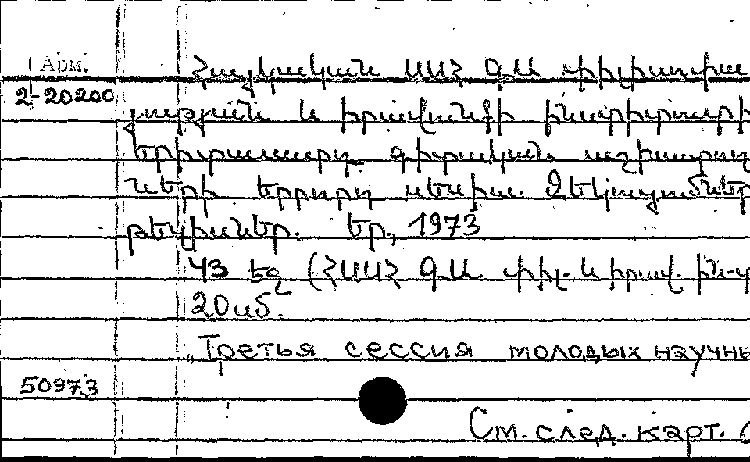 Арм.
Հայկական ՍՍՀ ԳԱ փիլիսոփա
2-20200
յության և իրավունքի ինստիտուտի
երիտասարդ գիտական աշխատող
ների երրորդ սեսիա. Զեկուցումներ
թեզիսներ. Եր., 1973
43 էջ (ՀՍՍՀ ԳԱ. փիլ. և իրավ. ին-տ
20սմ.
Третья сессия молодых научны
50973
См. след. карт.